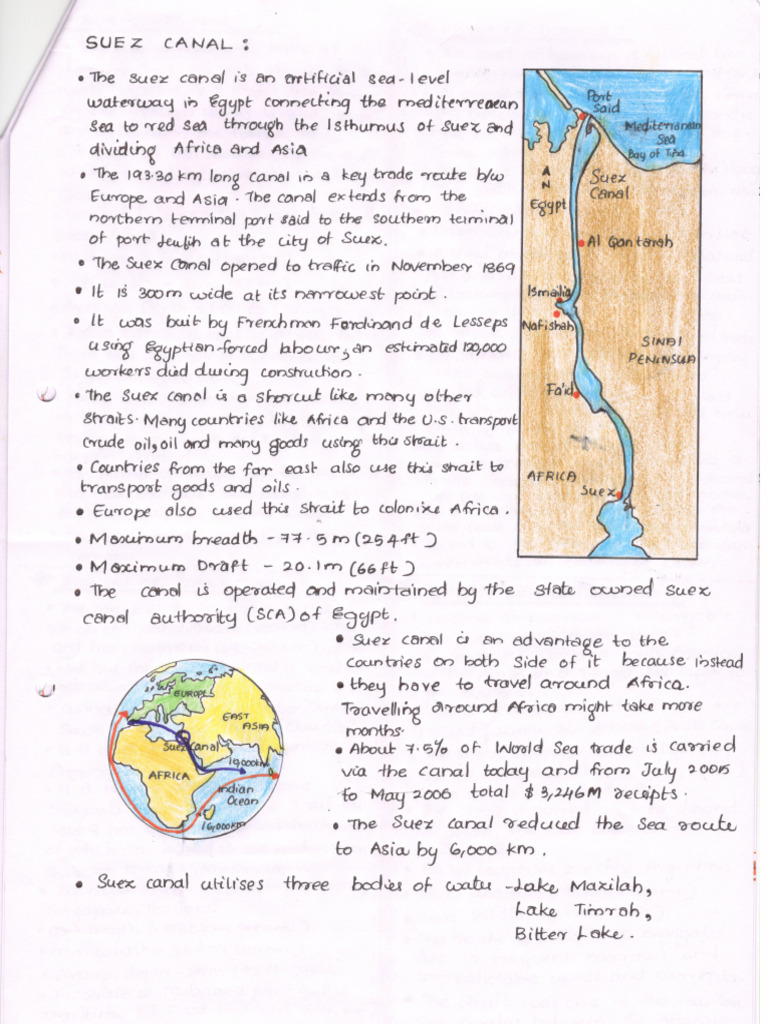 SUEZ CANAL :
• The suez canal is an artificial sea-level
waterway in Egypt connecting the mediterrenean
sea to red sea through the Isthumus of Suez and
dividing Africa and Asia
• The 193.30 km long canal in a key trade route b/w
Europe and Asia. The canal extends from the
northern terminal port said to the southern terminal
of port at the city of Suez.
• The Suez Canal opened to traffic in November 1869
• It is 300m wide at its narrowest point.
• It was buit by Frenchman Ferdinand de Lesseps
using Egyptian-forced labour, an estimated 120,000
workers died during construction.
• The suez canal is a shorcut like many other
straits. Many countries like Africa and the U.S. transport
crude oil, oil and many goods using this strait.
• Countries from the far east also use this strait to
transport goods and oils.
• Europe also used this strait to colonize Africa.
• Maximum breadth - 77.5m (254ft)
• Maximum Draft - 20.1m (66ft)
• The canal is operated and maintained by the state owned suez
canal authority (SCA) of Egypt.
• Suez canal is an advantage to the
countries on both side of it because instead
• they have to travel around Africa.
Travelling around Africa might take more
months.
• About 7.5% of World Sea trade is carried
via the canal today and from July 2005
to May 2006 total $ 3,246M receipts.
• The Suez canal reduced the sea route
to Asia by 6,000 km.
• Suez canal utilises three bodies of water - Lake Mazilah,
Lake Timrah,
Bitter Lake.
Port
Said
Mediterranean
Sea
Bay of Tina
Suez
Canal
A
N
Egypt
Al Qantarah
Ismailia
Nafishah
SINAI
PENINSUA
Fa'id
AFRICA
Suez
EUROPE
EAST
ASIA
Suez Canal
19000km
AFRICA
Indian
Ocean
16,000km